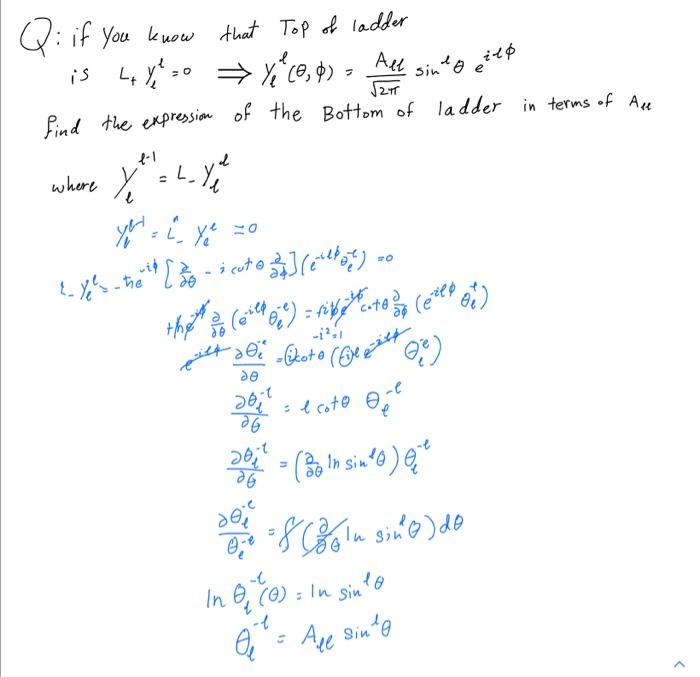 Q: if you know that Top of ladder
is L₊ Yₗˡ = 0 ⟹ Yₗˡ(θ, φ) = Aₗₗ/√2π sinˡθ e^{ilφ}
find the expression of the Bottom of ladder in terms of Aₗₗ
where Yₗ^{l-1} = L₋ Yₗˡ
Yₗ^{l-1} = L̂₋ Yₗˡ = 0
L₋ Yₗˡ = -ħe^{-iφ} [∂/∂θ - i cotθ ∂/∂φ] (e^{-ilφ} θₗ^{-l}) = 0
+ħe^{-iφ} ∂/∂θ (e^{-ilφ} θₗ^{-l}) = +iħe^{-iφ} cotθ ∂/∂φ (e^{-ilφ} θₗ^{-l})
-i²=1
e^{-ilφ} ∂θₗ^{-l}/∂θ = i cotθ (-il e^{-ilφ} θₗ^{-l})
∂θₗ^{-l}/∂θ = l cotθ θₗ^{-l}
∂θₗ^{-l}/∂θ = (∂/∂θ ln sinˡθ) θₗ^{-l}
∂θₗ^{-l}/θₗ^{-l} = ∫ (∂/∂θ ln sinˡθ) dθ
ln θₗ^{-l}(θ) = ln sinˡθ
θₗ^{-l} = Aₗₗ sinˡθ